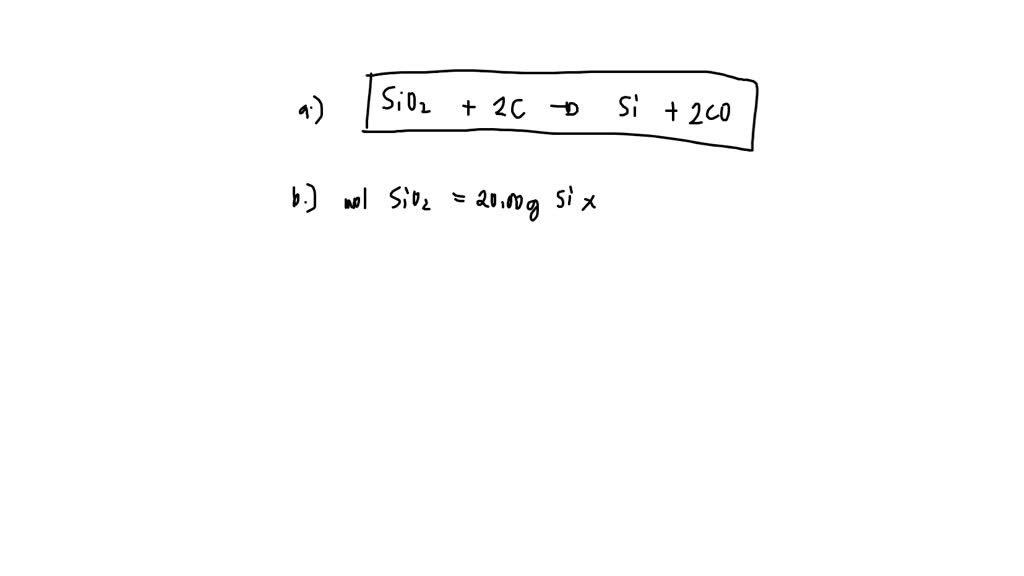 a.) SiO₂ + 2C → Si + 2CO
b.) mol SiO₂ = 20.00g Si x